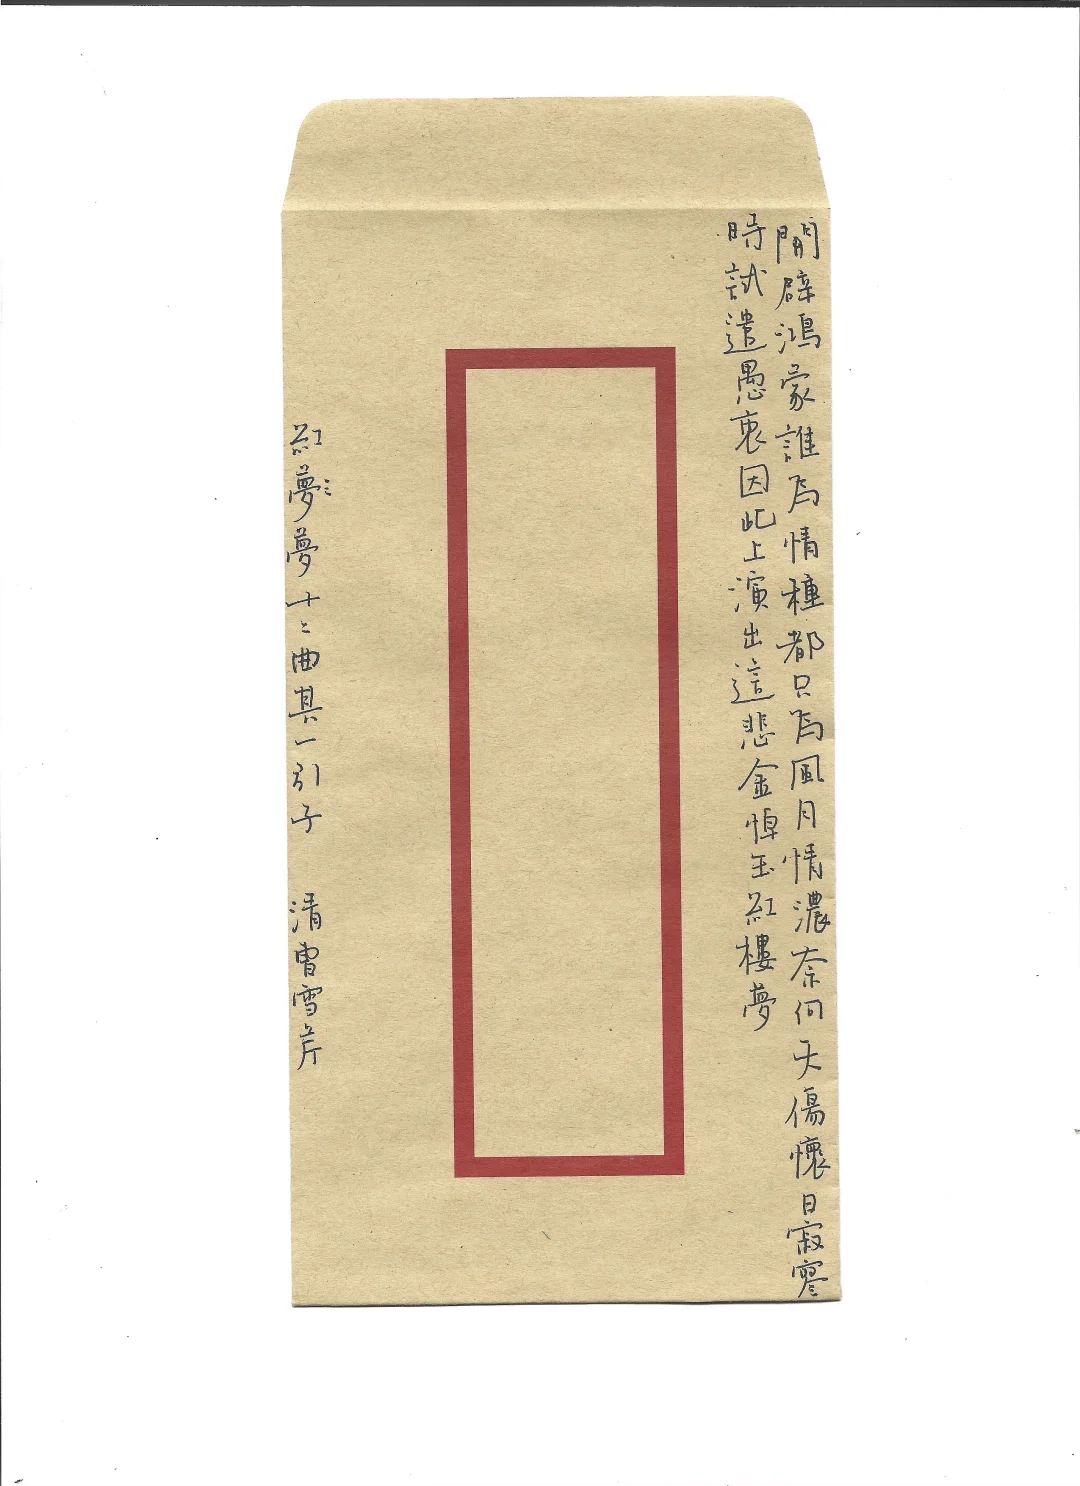 開辟鴻蒙誰為情種都只為風月情濃奈何天傷懷日寂寥
時試遣愚衷因此上演出這悲金悼玉紅樓夢
紅夢夢十二曲其一引子 清曹雪芹